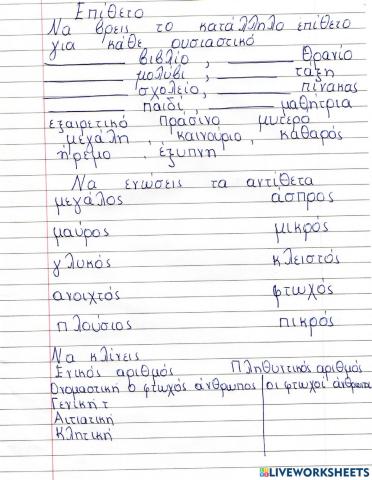 Επίθετο
Να βρεις το κατάλληλο επίθετο
για κάθε ουσιαστικό
βιβλίο, θρανίο
μολυβι, τάξη
σχολείο, πίνακας
παιδί, μαθήτρια
εξαιρετικό πράσινο μυτερό
μεγάλη, καινούριο, καθαρός
ήρεμο, έξυπνη
Να ενώσεις τα αντίθετα
μεγάλος άσπρος
μαύρος μικρός
γλυκός κλειστός
ανοιχτός φτωχός
πλούσιος πικρός
Να κλίνεις
Ενικός αριθμός Πληθυντικός αριθμός
Ονομαστική ο φτωχός άνθρωπος οι φτωχοί άνθρωποι
Γενική τ
Αιτιατική
Κλητική
LIVEWORKSHEETS